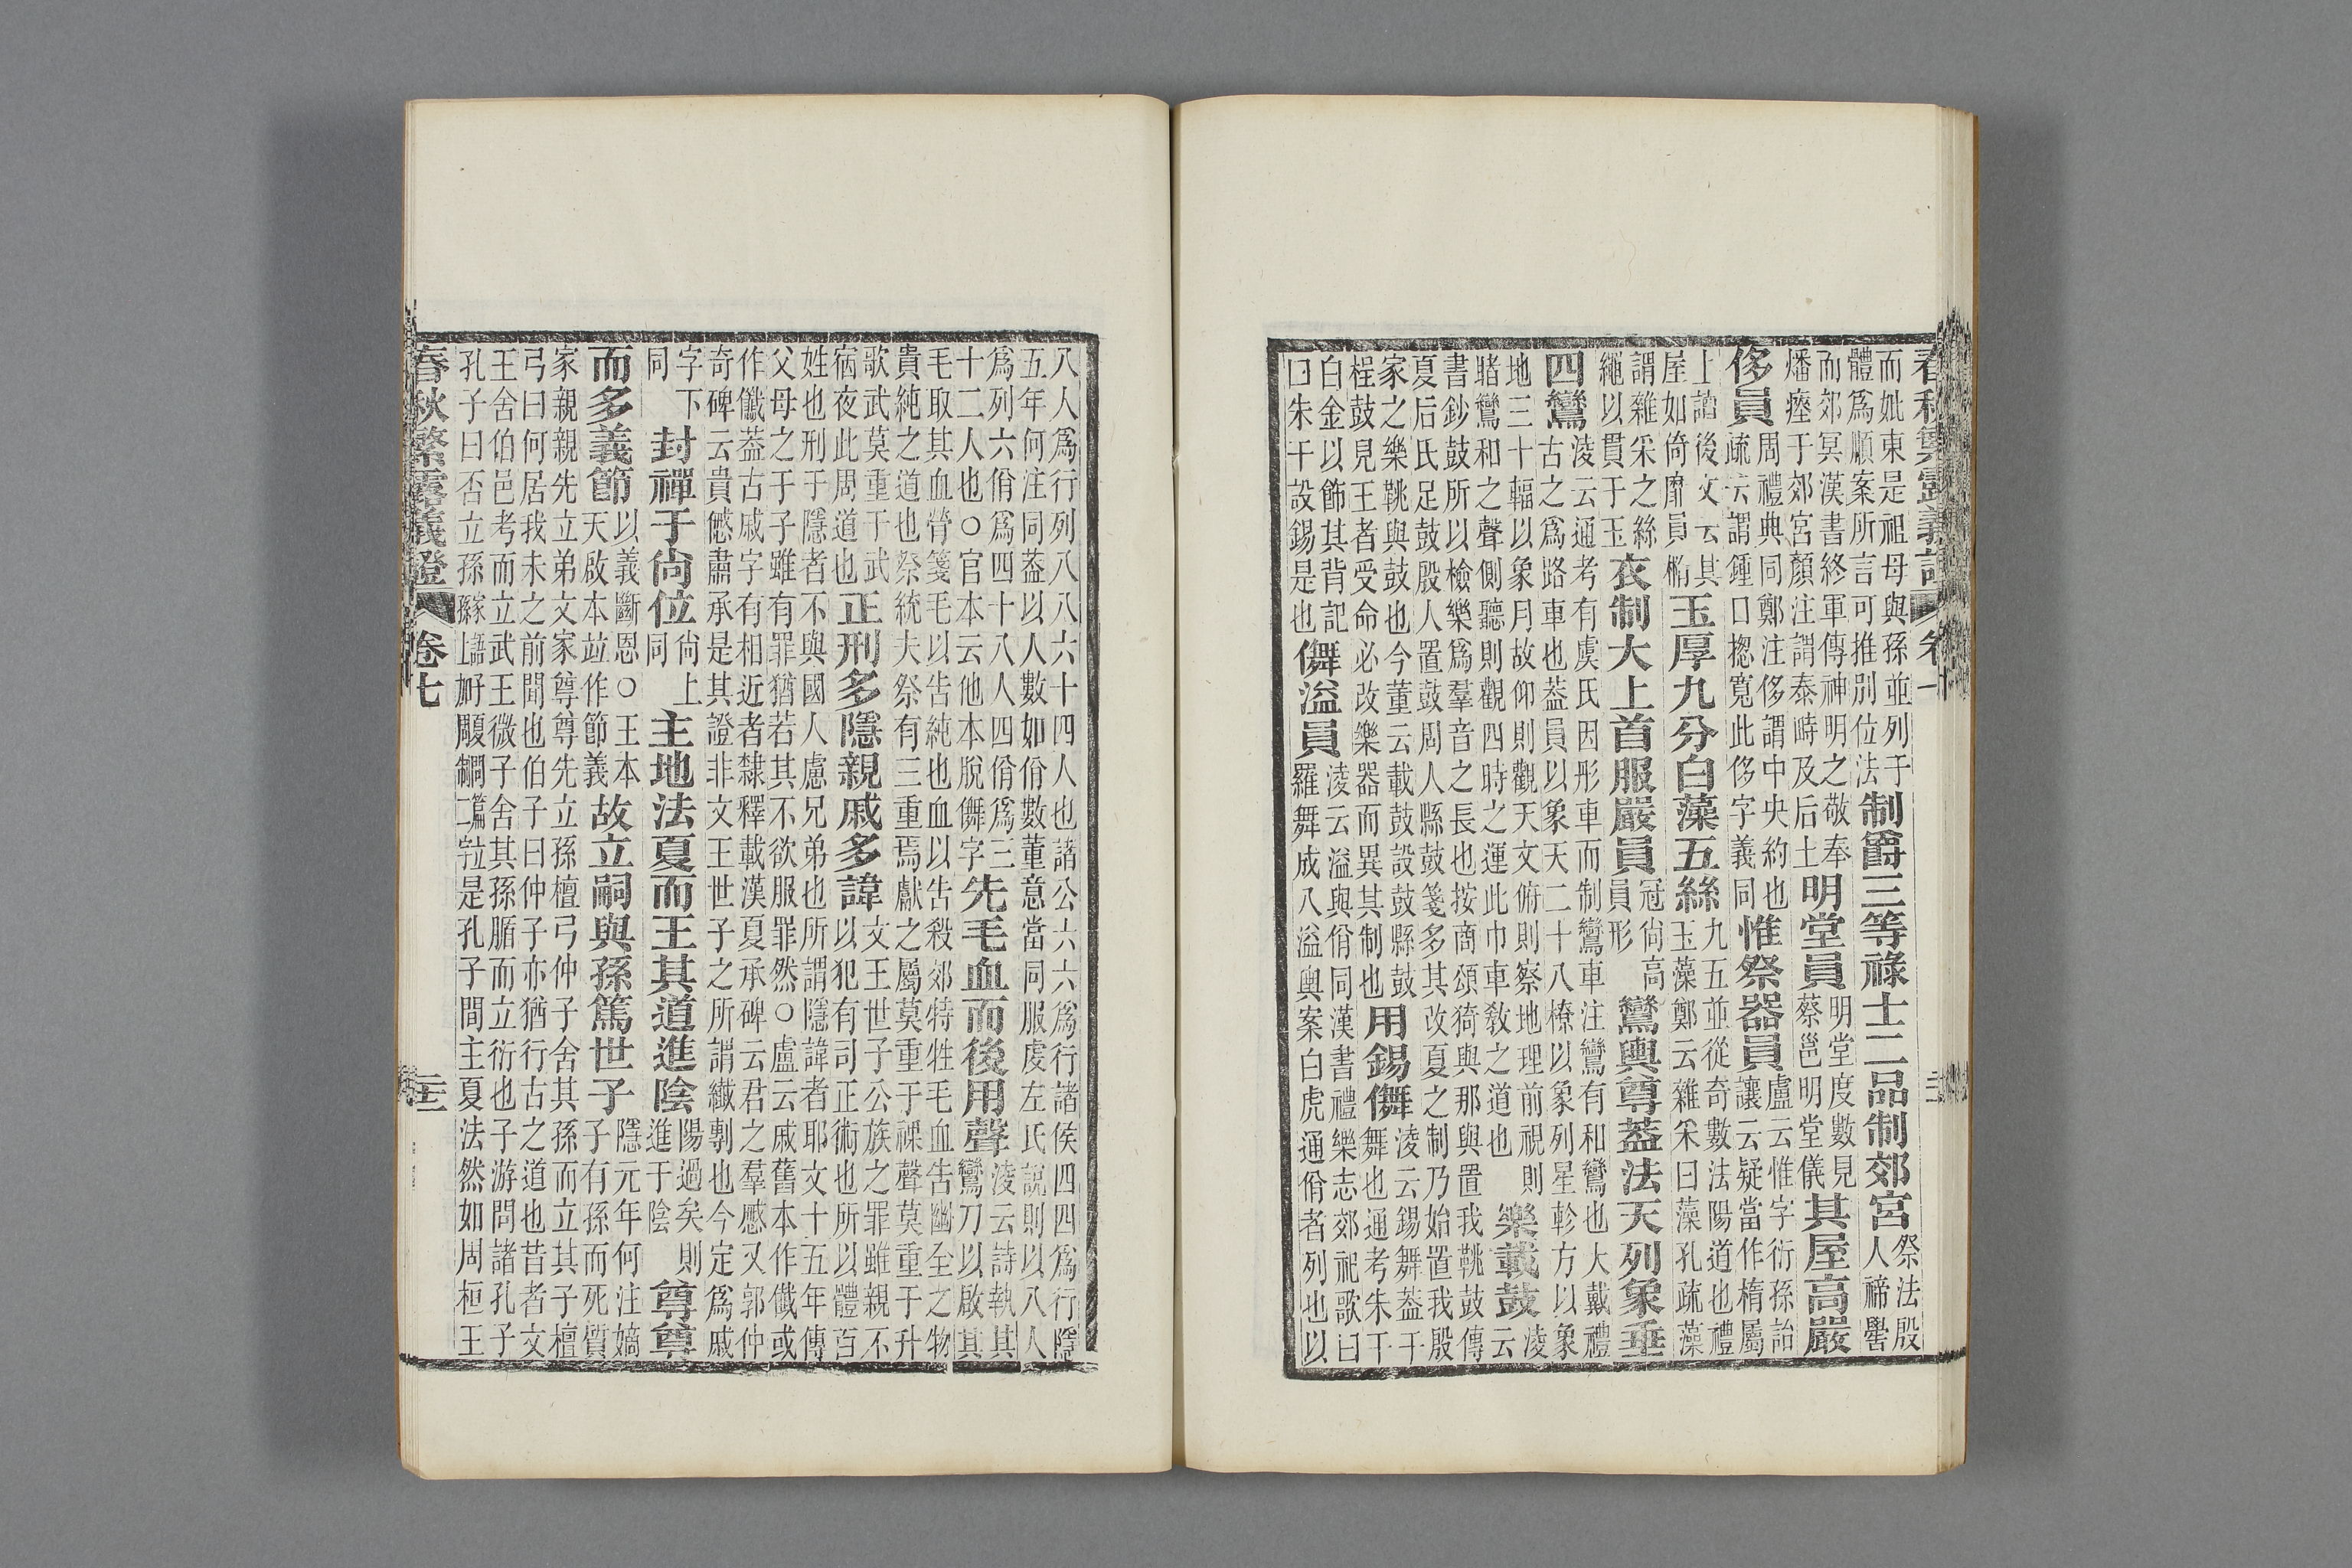 春秋繁露義證 卷七
而妣東是祖母與孫並列于
體爲順案所言可推別位法
制爵三等祿士二品制郊宮
祭法殷
人禘嚳
而郊冥漢書終軍傳神明之敬奉
燔瘞于郊宮顏注謂泰畤及后土
明堂員
明堂度數見
蔡邕明堂儀
其屋高嚴
侈員
周禮典同鄭注侈謂中央約也
疏云謂鍾口摠寬此侈字義同
惟祭器員
盧云惟字衍孫詒
讓云疑當作楕屬
上讀後文云其
屋如倚靡員橢
玉厚九分白藻五絲
九五並從奇數法陽道也禮
玉藻鄭云雜采曰藻孔疏藻
謂雜采之絲
繩以貫于玉
衣制大上首服嚴員
冠尙高
員形
鸞輿尊蓋法天列象垂
四鸞
淩云通考有虞氏因彤車而制鸞車注鸞有和鸞也大戴禮
古之爲路車也蓋員以象天二十八橑以象列星軫方以象
地三十輻以象月故仰則觀天文俯則察地理前視則
睹鸞和之聲側聽則觀四時之運此巾車敎之道也
樂載鼓
淩
云
書鈔鼓所以檢樂爲羣音之長也按商頌猗與那與置我鞉鼓傳
夏后氏足鼓殷人置鼓周人縣鼓箋多其改夏之制乃始置我殷
家之樂鞉與鼓也今董云載鼓設鼓縣鼓
桯鼓見王者受命必改樂器而異其制也
用錫儛
淩云錫舞蓋干
舞也通考朱干
白金以飾其背記
曰朱干設錫是也
儛溢員
淩云溢與佾同漢書禮樂志郊祀歌曰
羅舞成八溢輿案白虎通佾者列也以
八人爲行列八八六十四人也諸公六六爲行諸侯四四爲行隱
五年何注同蓋以人數如佾數董意當同服虔左氏說則以八人
爲列六佾爲四十八人四佾爲三
十二人也○官本云他本脫儛字
先毛血而後用聲
淩云詩執其
鸞刀以啟其
毛取其血膋箋毛以告純也血以告殺郊特牲毛血告幽全之物
貴純之道也祭統夫祭有三重焉獻之屬莫重于祼聲莫重于升
歌武莫重于武
宿夜此周道也
正刑多隱親戚多諱
文王世子公族之罪雖親不
以犯有司正術也所以體百
姓也刑于隱者不與國人慮兄弟也所謂隱諱者耶文十五年傳
父母之于子雖有罪猶若其不欲服罪然○盧云戚舊本作儀或
作儀蓋古戚字有相近者隸釋載漢夏承碑云君之羣慼又郭仲
奇碑云貴慼肅承是其證非文王世子之所謂纖剸也今定爲戚
字下
同
封禪于尙位
尙上
同
主地法夏而王其道進陰
陽過矣則
進于陰
尊尊
而多義節
以義斷恩○王本
天啟本竝作節義
故立嗣與孫篤世子
隱元年何注嫡
子有孫而死質
家親親先立弟文家尊尊先立孫檀弓仲子舍其孫而立其子檀
弓曰何居我未之前聞也伯子曰仲子亦猶行古之道也昔者文
王舍伯邑考而立武王微子舍其孫腯而立衍也子游問諸孔子
孔子曰否立孫是孔子間主夏法然如周桓王
春秋繁露義證 卷七